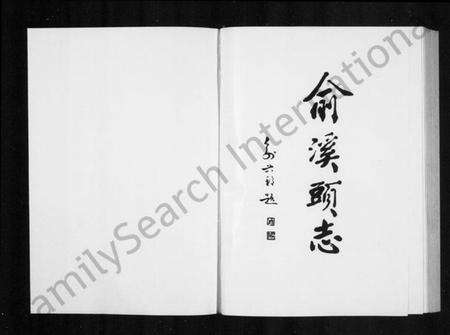 俞溪頭志
題
FamilySearch International